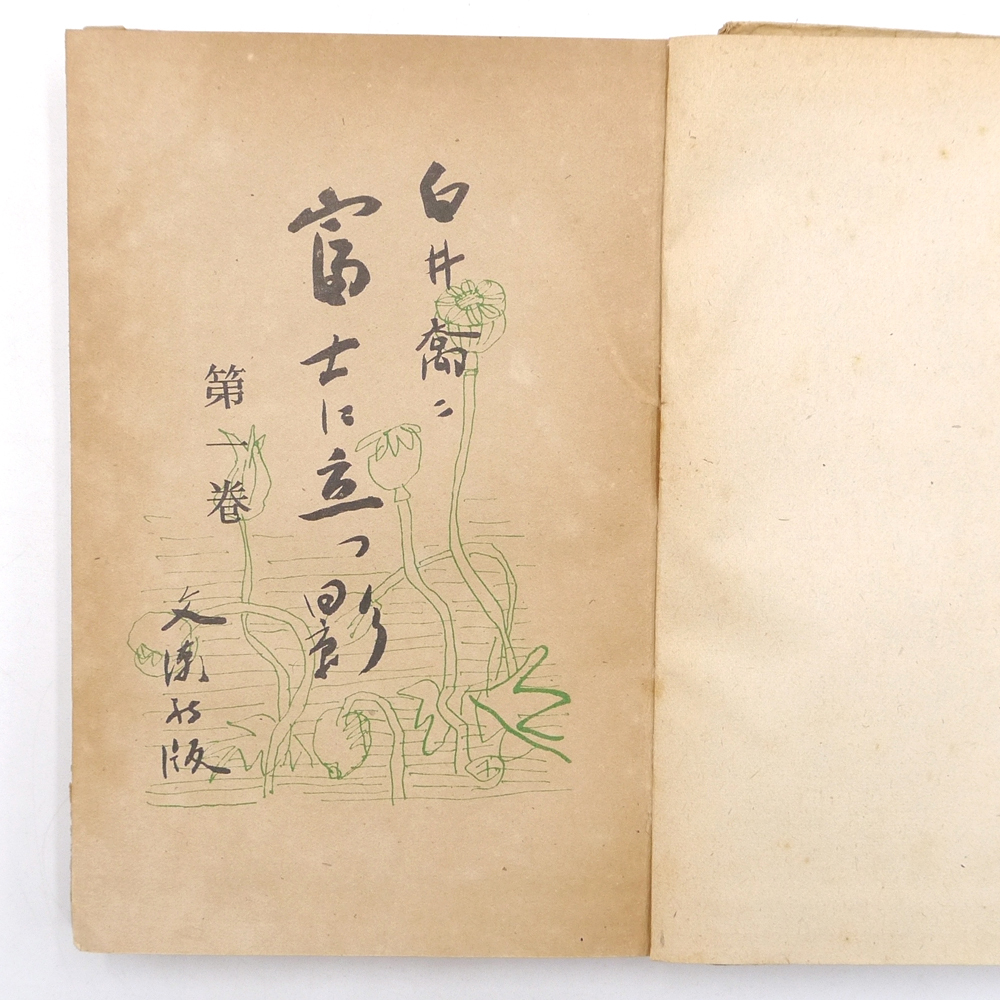 白井喬二
富士に立つ影
第一巻
文陽社版